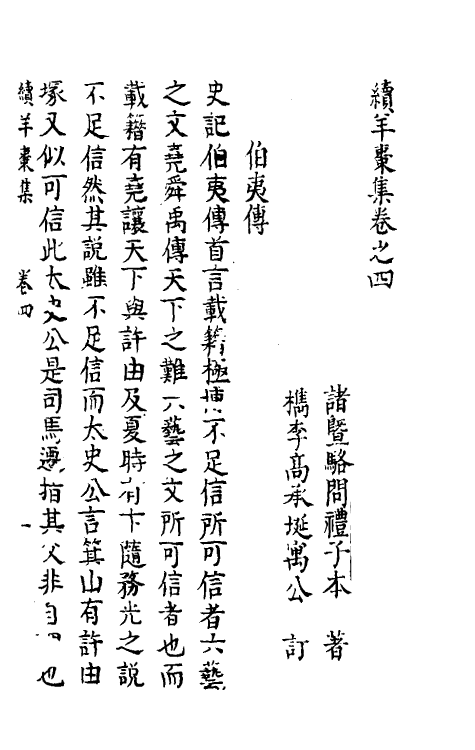 續羊棗集卷之四
諸暨駱問禮子本 著
檇李高承埏寓公 訂
伯夷傳
史記伯夷傳首言載籍極博不足信所可信者六藝
之文堯舜禹傳天下之難六藝之文所可信者也而
載籍有堯讓天下與許由及夏時有卞隨務光之説
不足信然其説雖不足信而太史公言箕山有許由
塚又似可信此太史公是司馬遷指其父非自 也
續羊棗集 卷四 一